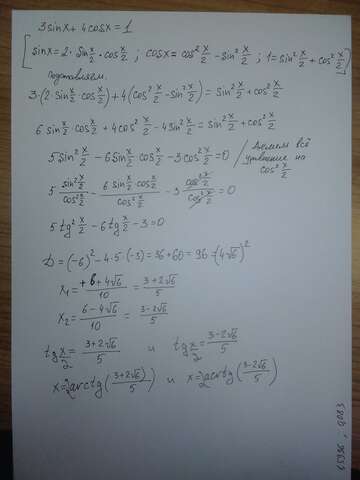 3sinx + 4cosx = 1
[sinx = 2·sin x/2 · cos x/2 ; cosx = cos² x/2 − sin² x/2 ; 1 = sin² x/2 + cos² x/2]
подставляем.
3·(2·sin x/2 cos x/2) + 4(cos² x/2 − sin² x/2) = sin² x/2 + cos² x/2
6 sin x/2 cos x/2 + 4cos² x/2 − 4sin² x/2 = sin² x/2 + cos² x/2
5sin² x/2 − 6sin x/2 cos x/2 − 3cos² x/2 = 0 / Делим всё
на
cos² x/2
5 sin² x/2 / cos² x/2 − 6 sin x/2 cos x/2 / cos² x/2 − 3 cos² x/2 / cos² x/2 = 0
5tg² x/2 − 6tg x/2 − 3 = 0
D = (−6)² − 4·5·(−3) = 36 + 60 = 96 = (4√6)²
x₁ = +6 + 4√6 / 10 = 3 + 2√6 / 5
x₂ = 6 − 4√6 / 10 = 3 − 2√6 / 5
tg x/2 = 3 + 2√6 / 5 и tg x/2 = 3 − 2√6 / 5
x = 2arctg(3 + 2√6 / 5) и x = 2arctg(3 − 2√6 / 5)